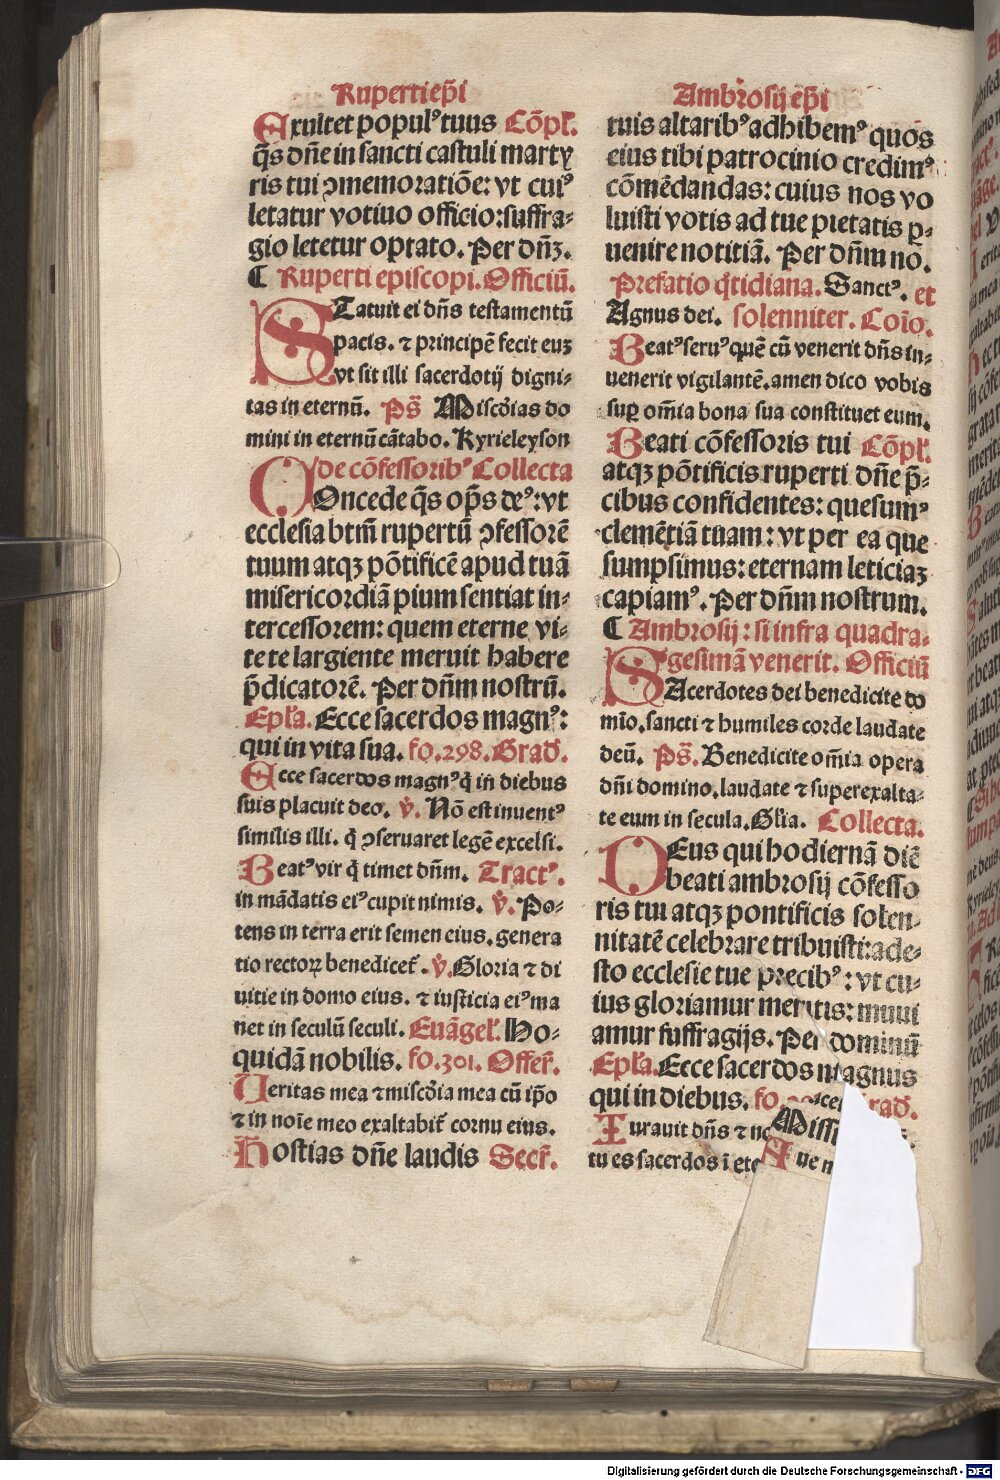 Ruperti ep̄i
Exultet popul⁹ tuus Cōpl̄.
q̄s dn̄e in sancti castuli marty
ris tui ꝯmemoratiōe: vt cui⁹
letatur votiuo officio: suffra⸗
gio letetur optato. Per dn̄ꝫ.
¶ Ruperti episcopi. Officiū.
STatuit ei dn̄s testamentū
pacis. ⁊ principē fecit euꝫ
vt sit illi sacerdotij digni⸗
tas in eternū. Ps̄ Miscd̄ias do
mini in eternū cātabo. Kyrieleyson
de cōfessorib⁹ Collecta
COncede q̄s op̄s de⁹: vt
ecclesia btm̄ rupertū ꝯfessorē
tuum atqꝫ pōtificē apud tuā
misericordiā pium sentiat in⸗
tercessorem: quem eterne vi⸗
te te largiente meruit habere
p̄dicatorē. Per dn̄m nostrū.
Epl̄a. Ecce sacerdos magn⁹:
qui in vita sua. fo. 298. Grad̄.
Ecce sacerdos magn⁹ q̄ in diebus
suis placuit deo. v̄. Nō est inuent⁹
similis illi. q̄ ꝯseruaret legē excelsi.
Beat⁹ vir q̄ timet dn̄m. Tract⁹.
in mādatis ei⁹ cupit nimis. v̄. Po⸗
tens in terra erit semen eius. genera
tio rectoꝝ benedicet̄. v̄. Gloria ⁊ di
uitie in domo eius. ⁊ iusticia ei⁹ ma
net in seculū seculi. Euāgel̄. Ho⸗
quidā nobilis. fo. 301. Offer̄.
Ueritas mea ⁊ miscd̄ia mea cū ip̄o
⁊ in noīe meo exaltabit̄ cornu eius.
Hostias dn̄e laudis Secr̄.
Ambrosij ep̄i
tuis altarib⁹ adhibem⁹ quos
eius tibi patrocinio credim⁹
cōmēdandas: cuius nos vo
luisti votis ad tue pietatis ꝑ⸗
uenire notitiā. Per dn̄m no.
Prefatio q̄tidiana. Sanct⁹. et
Agnus dei. solenniter. Coīo.
Beat⁹ seru⁹ quē cū venerit dn̄s in⸗
uenerit vigilantē. amen dico vobis
suꝑ om̄ia bona sua constituet eum.
Beati cōfessoris tui Cōpl̄.
atqꝫ pōtificis ruperti dn̄e p̄⸗
cibus confidentes: quesum⁹
clemētiā tuam: vt per ea que
sumpsimus: eternam leticiaꝫ
capiam⁹. Per dn̄m nostrum.
¶ Ambrosij: si infra quadra⸗
gesimā venerit. Officiū
SAcerdotes dei benedicite do
mīo. sancti ⁊ humiles corde laudate
deū. Ps̄. Benedicite om̄ia opera
dn̄i domino. laudate ⁊ superexalta⸗
te eum in secula. Gl̄ia. Collecta.
DEus qui hodiernā diē
beati ambrosij cōfesso
ris tui atqꝫ pontificis solen⸗
nitatē celebrare tribuisti: ade⸗
sto ecclesie tue precib⁹: vt cu⸗
ius gloriamur meritis: muni
amur suffragijs. Per dominū
Epl̄a. Ecce sacerdos magnus
qui in diebus. fo. Grad̄.
Iurauit dn̄s ⁊ no
tu es sacerdos ī ete